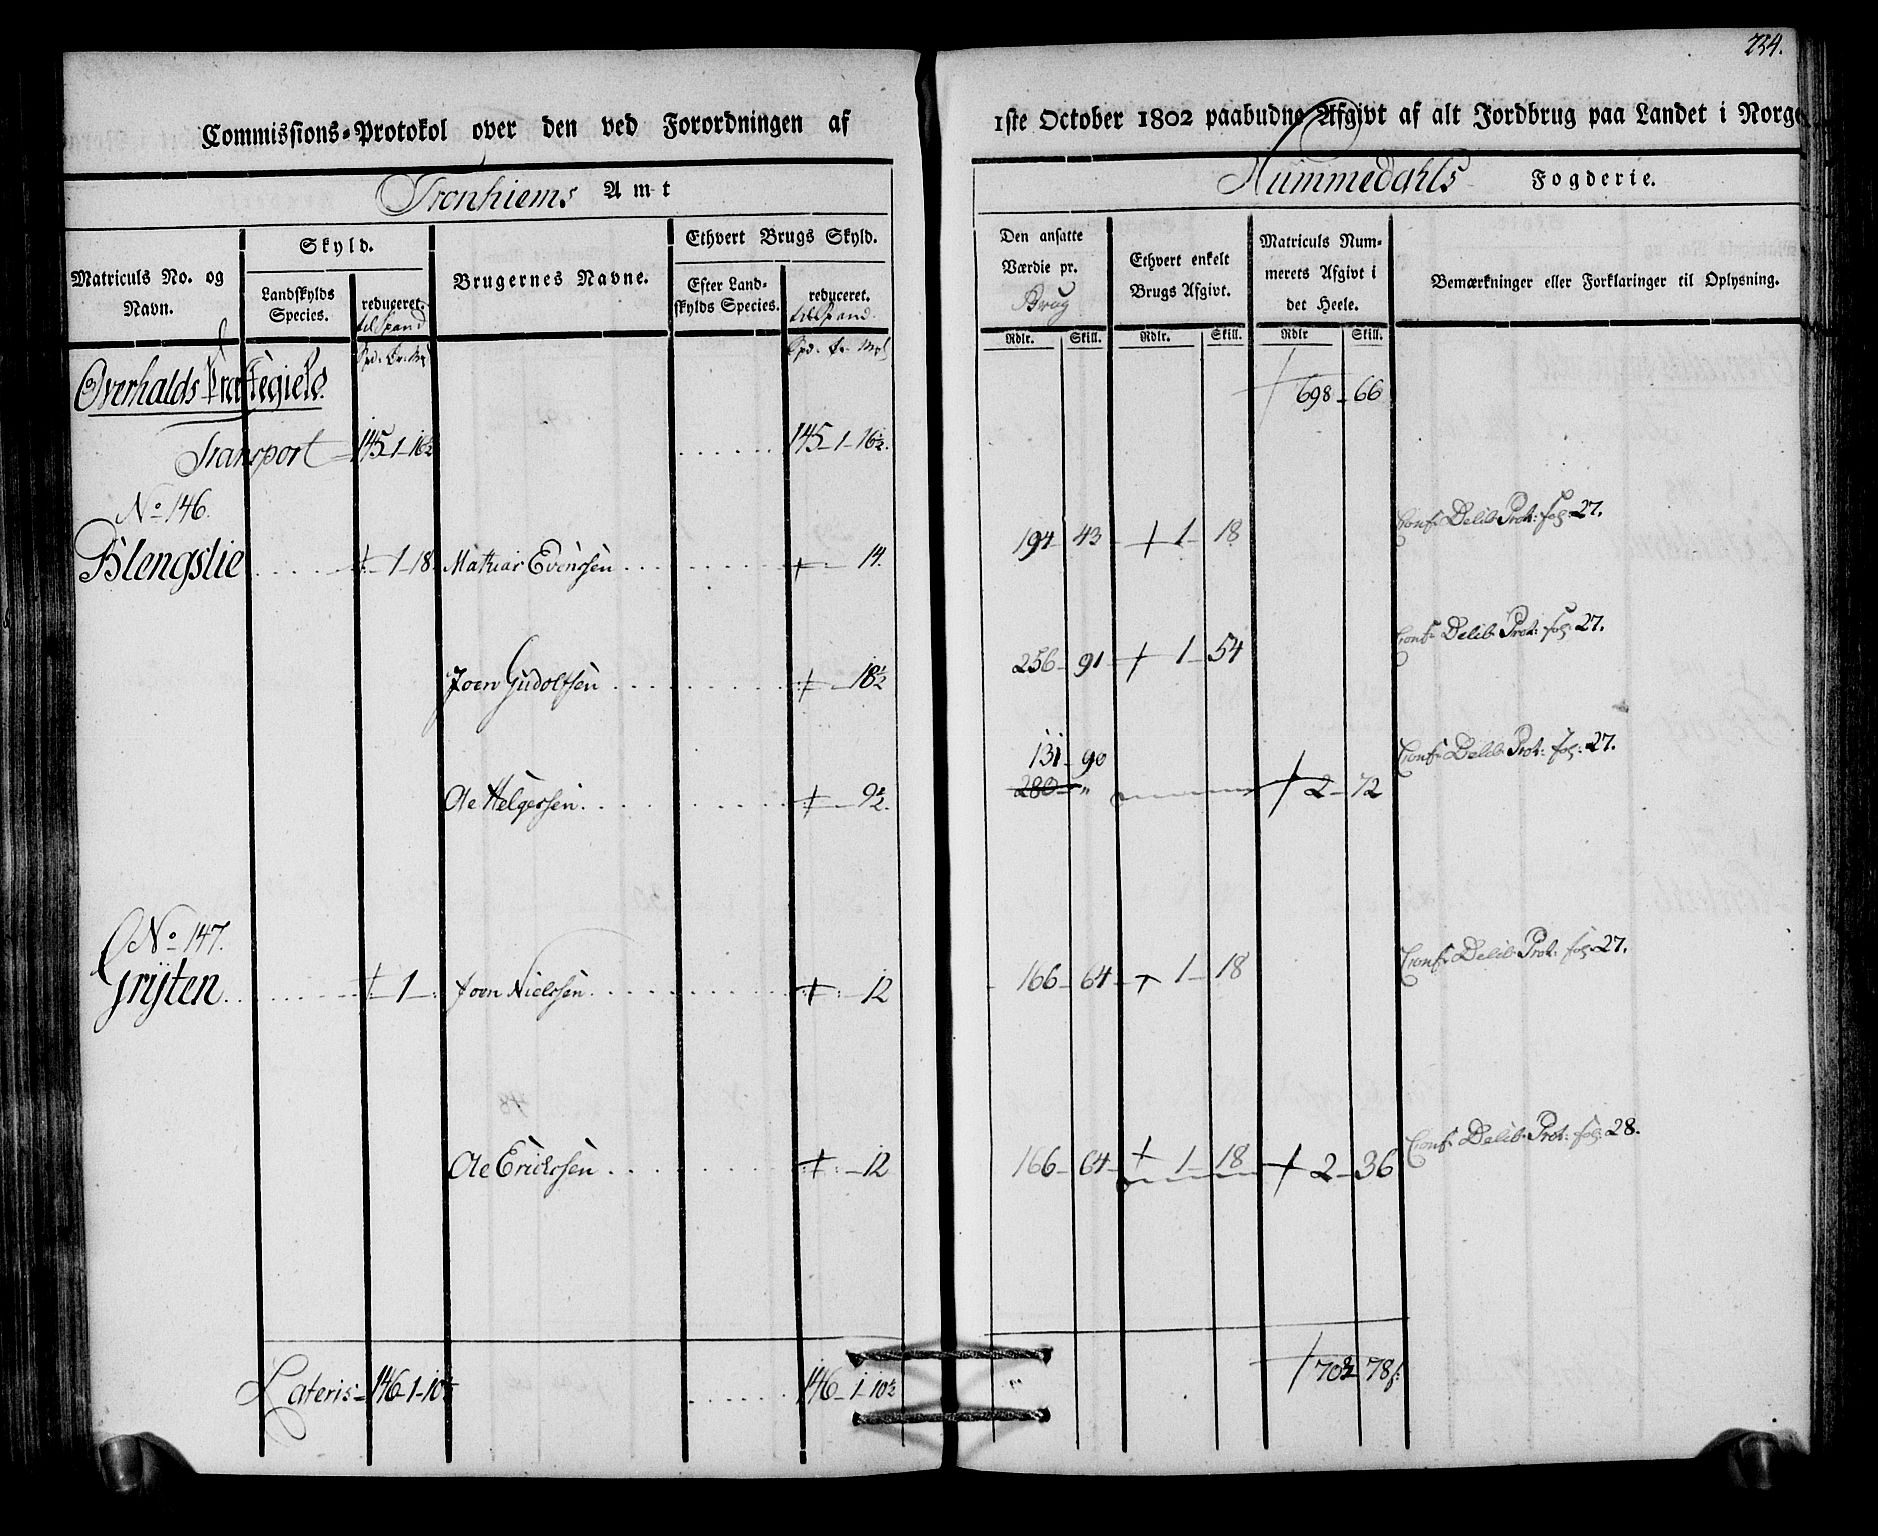 234.
Commissions-Protokol over den ved Forordningen af 1ste October 1802 paabudne Afgivt af alt Jordbrug paa Landet i Norge
Tronhiems Amt
Nummedahls Fogderie.
Matriculs No. og Navn.
Skyld.
Landskylds Species.
reduceret. til Spand
Brugernes Navne.
Ethvert Brugs Skyld.
Efter Landskylds Species.
reduceret. til Spand.
Den ansatte Værdie pr. Brug
Ethvert enkelt Brugs Afgivt.
Matriculs Nummerets Afgivt i det Heele.
Bemærkninger eller Forklaringer til Oplysning.
Rdlr. Skill. Rdlr. Skill. Rdlr Skill.
Overhalds Præstegield. 698 - 66
Transport 145 - 1 - 16½ 145 - 1 - 16½.
No 146.
Blengslie - 1 - 18 Mathias Evensen 14. 194 - 43 1 - 18 Conf. Delib. Prot: fol: 27.
Joen Gudolfsen 18½ 256 - 91 1 - 54 Conf. Delib. Prot: fol: 27.
131 - 90
Ole Helgessen 9½. 280 - " 2 - 72 Conf. Delib. Prot: fol: 27.
No 147.
Grÿten - 1 - Joen Nielssen 12 166 - 64 1 - 18 Conf. Delib. Prot: fol: 27.
Ole Erickssen 12 166 - 64 1 - 18 2 - 36 Conf. Delib. Prot: fol: 28.
Lateris 146 - 1 - 10½ 146 - 1 - 10½ 78 s: